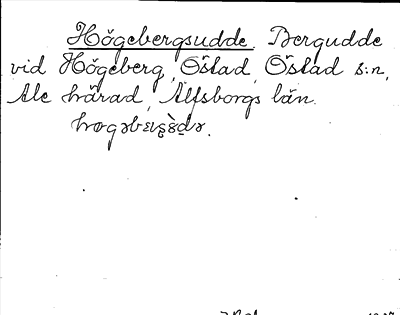 Högebergsudde Bergudde
vid Högeberg, Östad, Östad s:n,
Ale härad, Älfsborgs län.